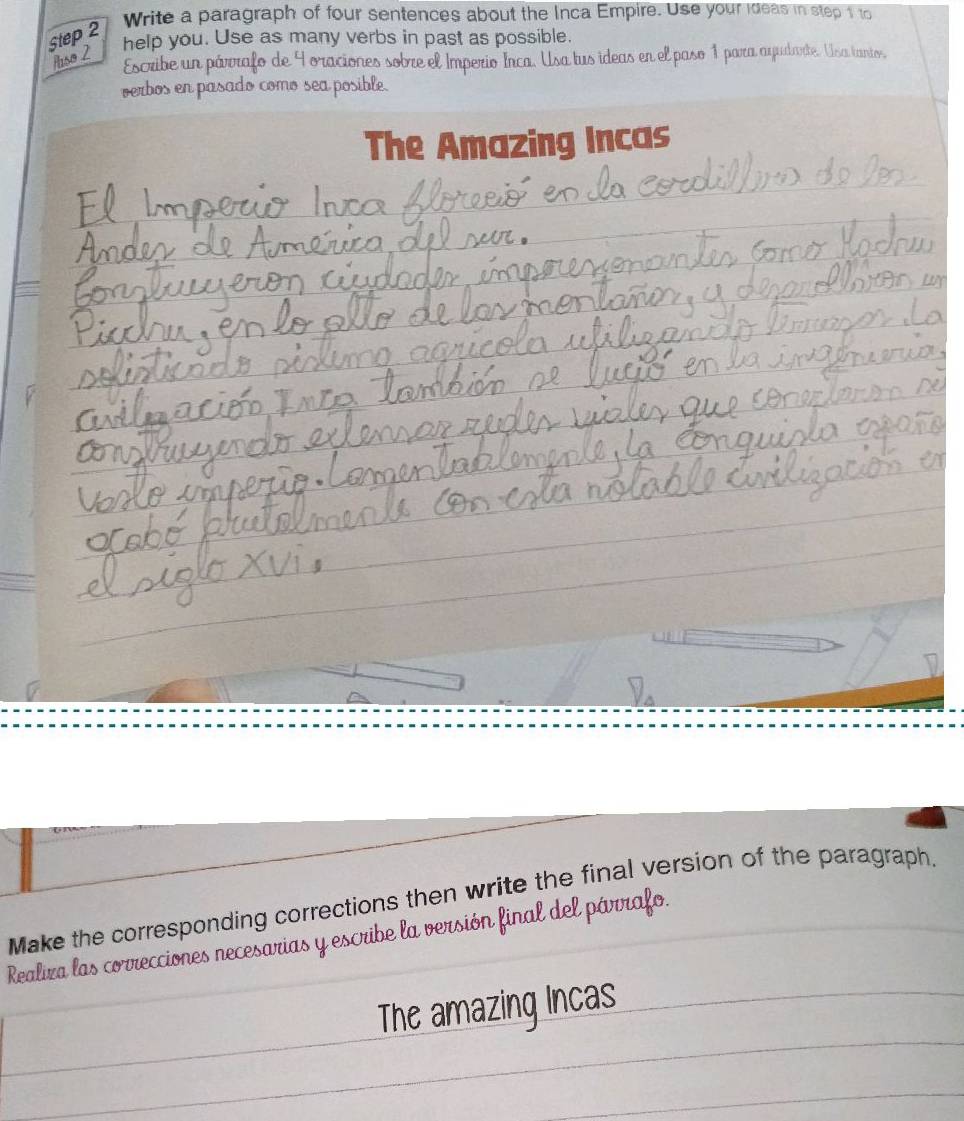 Step 2
Paso 2
Write a paragraph of four sentences about the Inca Empire. Use your ideas in step 1 to
help you. Use as many verbs in past as possible.
Escribe un párrafo de 4 oraciones sobre el Imperio Inca. Usa tus ideas en el paso 1 para ayudarte. Usa tantos
verbos en pasado como sea posible.
The Amazing Incas
El Imperio Inca floreció en la cordillera de los
Andes de América del sur.
Construyeron ciudades impresionantes como Machu
Picchu, en lo alto de las montañas, y desarrollaron un
sofisticado sistema agrícola utilizando terrazas. La
civilización Inca también se lució en la ingeniería,
construyendo extensas redes viales que conectaron su
vasto imperio. Lamentablemente, la conquista españo
acabó brutalmente con esta notable civilización en
el siglo XVI.
Make the corresponding corrections then write the final version of the paragraph.
Realiza las correcciones necesarias y escribe la versión final del párrafo.
The amazing Incas